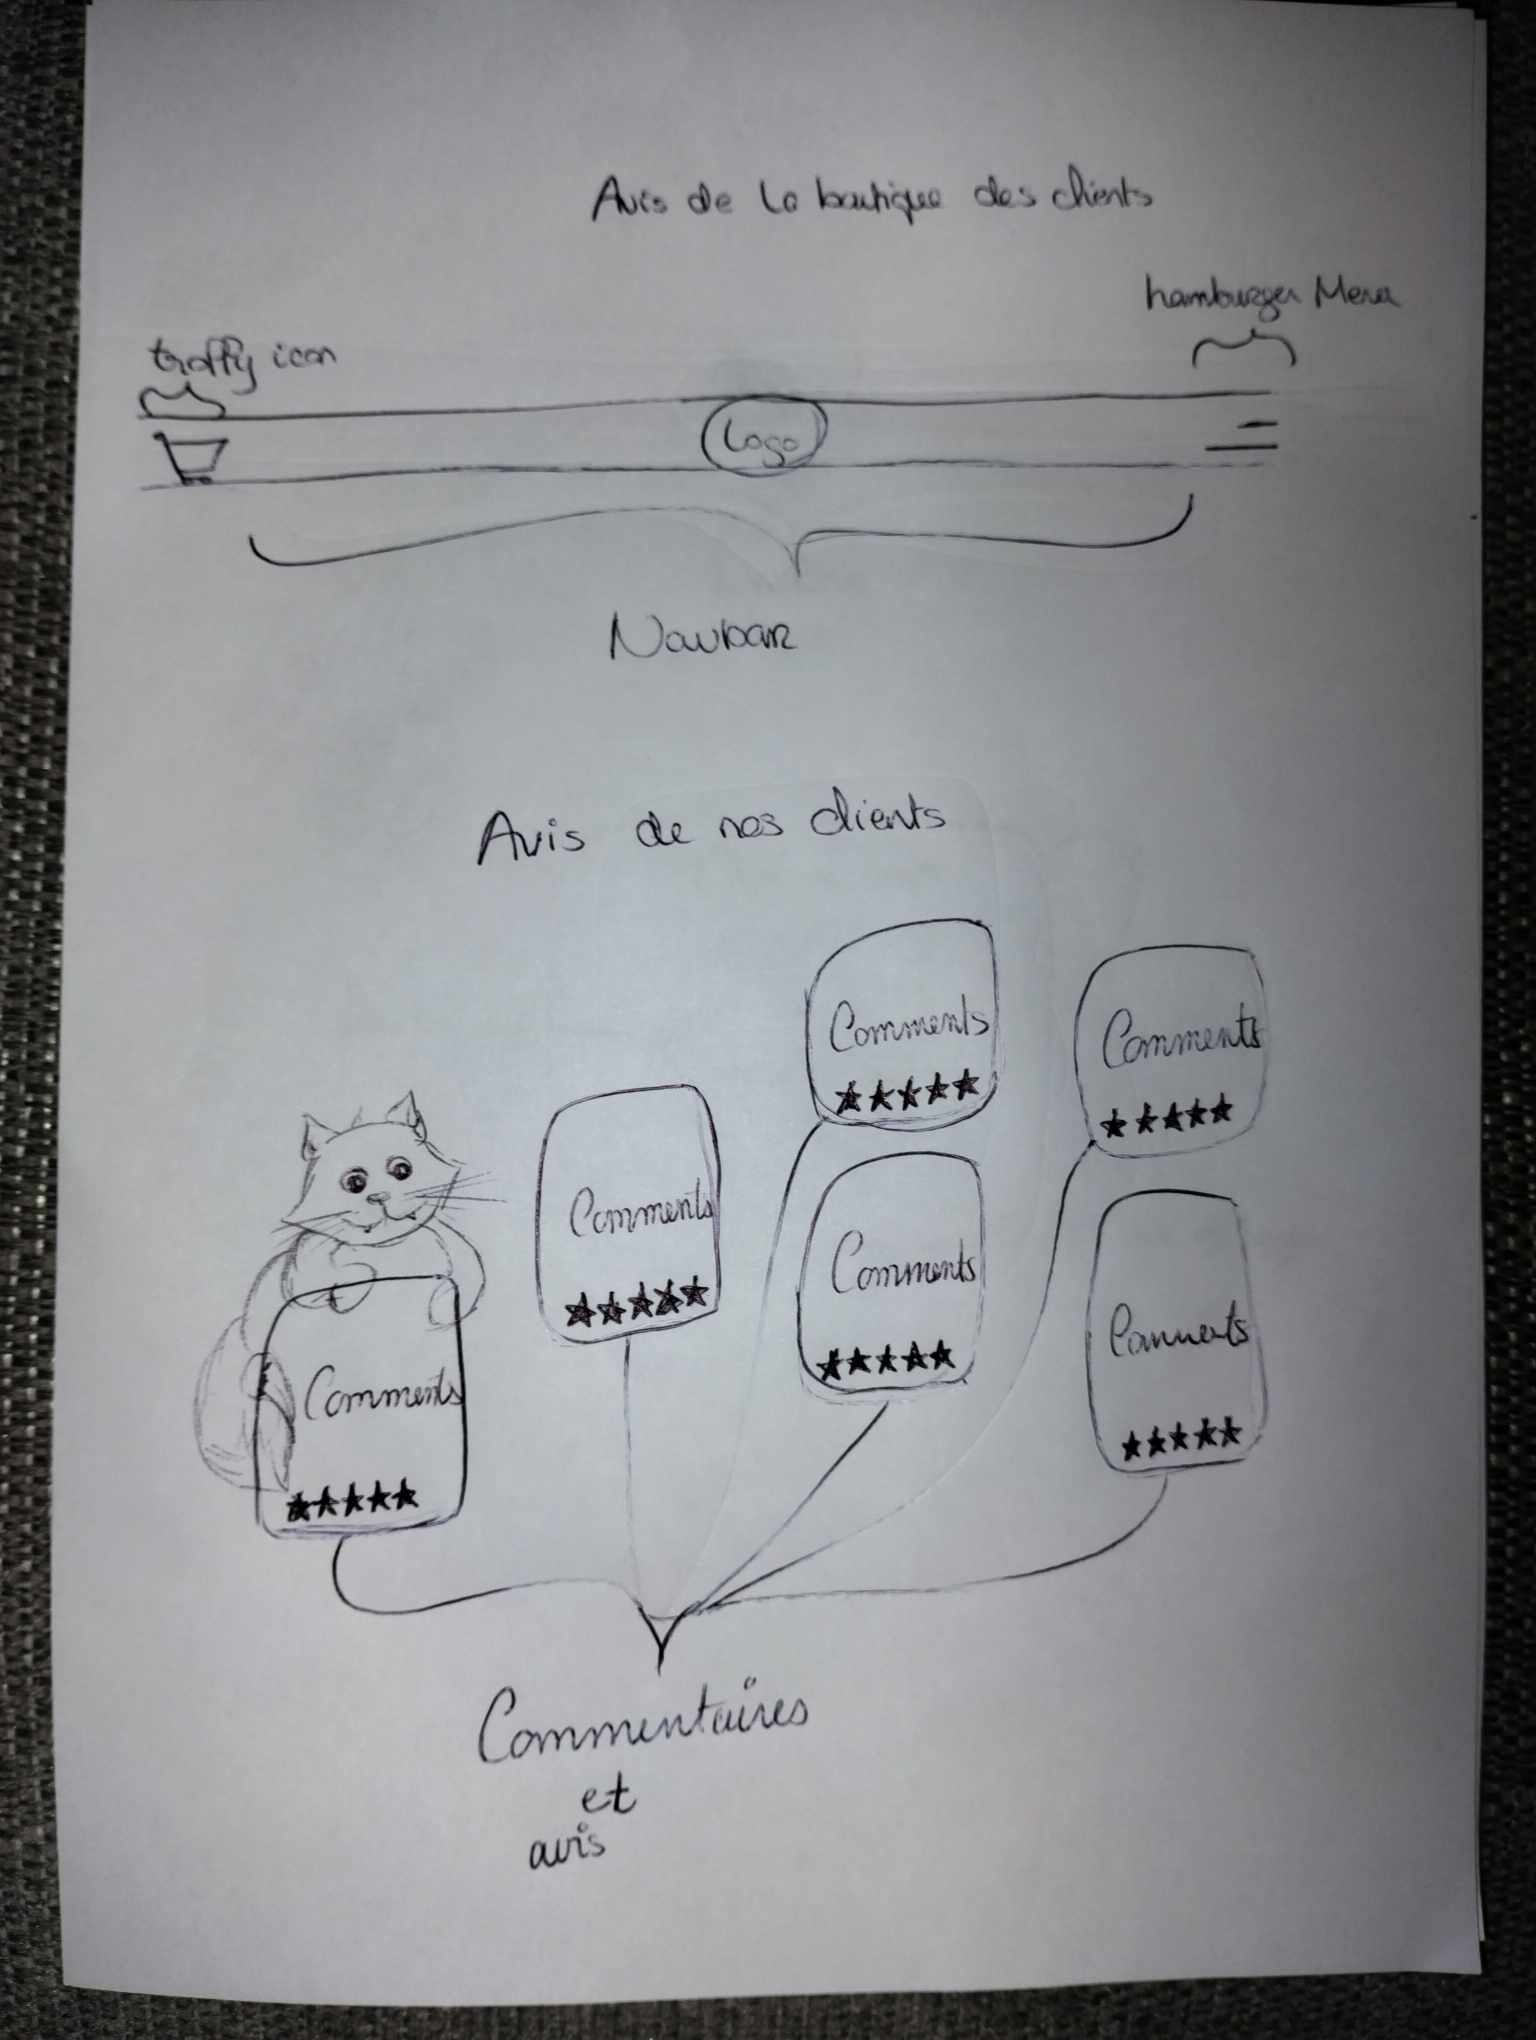 Avis de la boutique des clients
hamburger Menu
troffy icon
Logo
Navbar
Avis de nos clients
Comments
Comments
Comments
Comments
Comments
Comments
Commentaires
et
avis